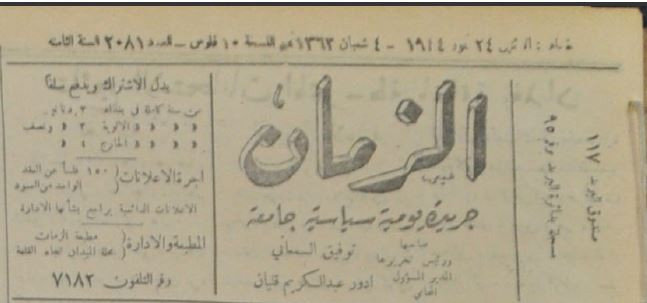 بغداد : الاثنين ٢٤ تموز ١٩٤٤ – ٤ شعبان ١٣٦٣ ثمن النسخة ١٠ فلوس – العدد ٢٠٨١ السنة الثامنة
الزمان
جريدة يومية سياسية جامعة
صاحبها
ورئيس تحريرها
توفيق السمعاني
المدير المسؤول
المحامي
ادور عبدالكريم قليان
صندوق البريد ١١٧
مسجلة بدائرة البريد برقم ٩٥
بدل الاشتراك ويدفع سلفا
عن سنة كاملة في بغداد ٢ دنانير
» » » » الالوية ٢ ونصف
» » » » الخارج ٤ »
اجرة الاعلانات ( ١٥٠ فلساً عن العقد الواحد من العمود
الاعلانات الدائمية يراجع بشأنها الادارة
المطبعة والادارة ( مطبعة الزمان
محلة الميدان تجاه القلعة
رقم التلفون ٧١٨٢